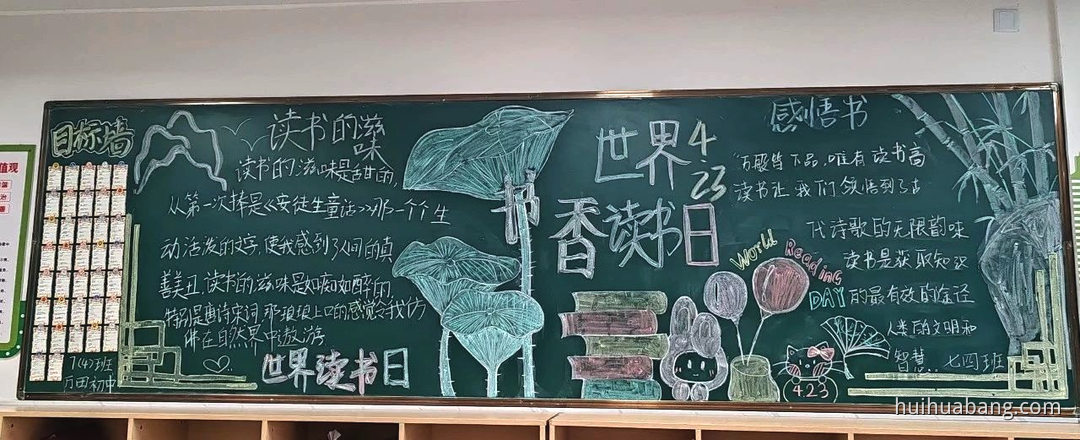 目标墙
读书的滋味
读书的滋味是甜的,
从第一次捧是《安徒生童话》那一个个生
动活泼的文字,使我感到了人间的真
善美丑.读书的滋味是如痴如醉的,
特别是唐诗宋词那琅琅上口的感觉令我仿
佛在自然界中遨游
世界读书日
7(4)班
万田初中
书
香
世界
4
23
读书日
World
Reading
DAY
4.23
感悟书
"万般皆下品,唯有读书高
读书让我们领悟到了古
代诗歌的无限韵味
读书是获取知识
的最有效的途径
人类的文明和
智慧..七四班
huihuabang.com